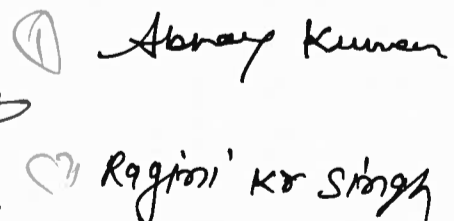 ① Abhay Kumar
Ragini Kr Singh